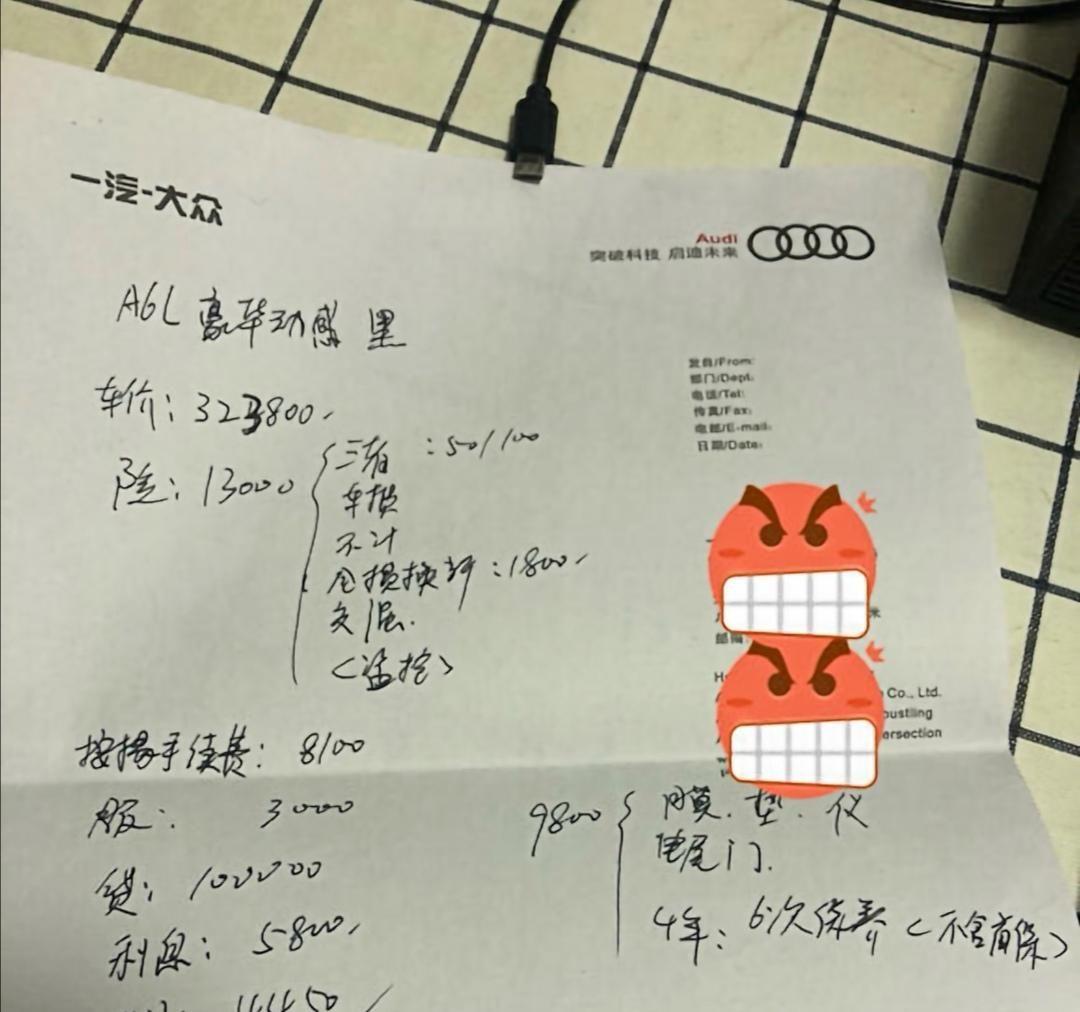 一汽-大众
Audi
突破科技 启迪未来
A6L 豪华动感 黑
发自/From:
部门/Dept:
电话/Tel:
传真/Fax:
电邮/E-mail:
日期/Date:
车价: 323800.
险: 13000
三者 : 50/100
车损
不计
仓损换新 : 1800.
交强.
(监控)
邮编
Co., Ltd.
bustling
ersection
按揭手续费: 8100
服: 3000
贷: 100000
利息: 5800.
9800
膜. 垫. 仪
电尾门.
4年: 6次保养 (不含首保)